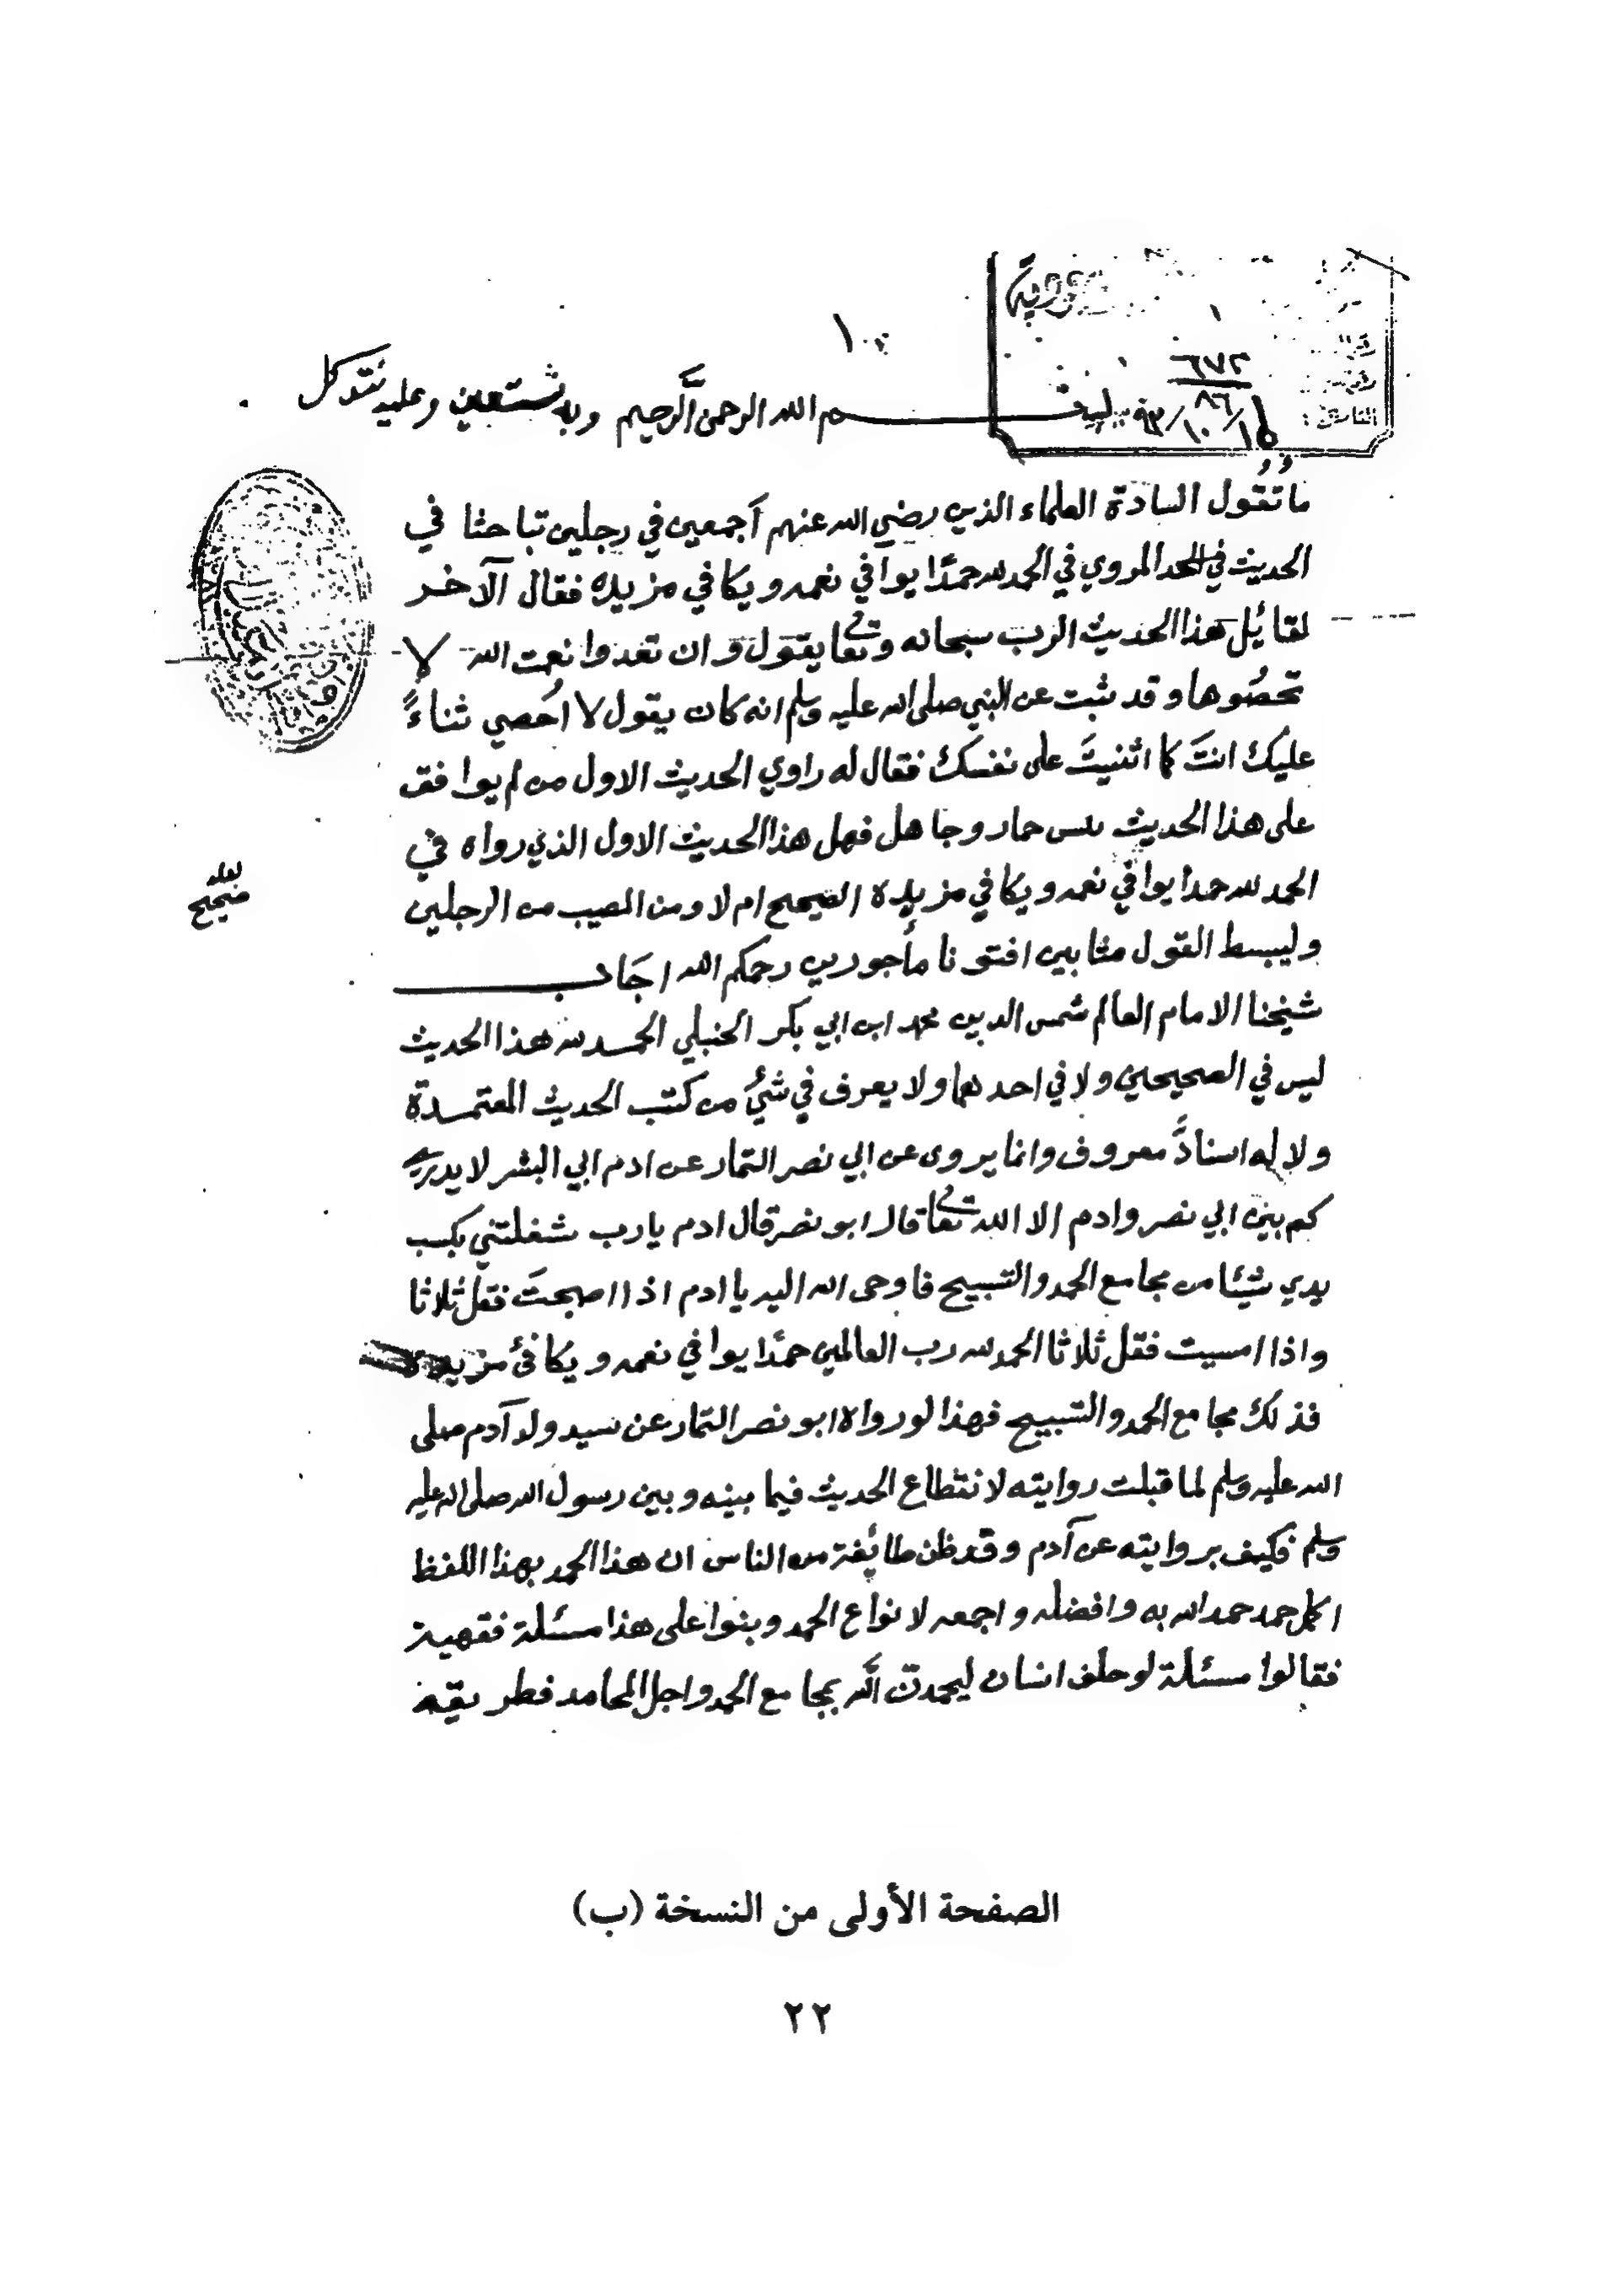 ١
٦٧٢
٨٦
بسم الله الرحمن الرحيم وبه نستعين وعليه نتوكل
ما تقُول السادة العلماء الذين رضي الله عنهم أجمعين في رجلين تباحثا في
الحديث في الحمد المروي في الحمد لله حمدًا يوافي نعمه ويكافي مزيده فقال الآخر
لقائل هذا الحديث الرب سبحانه وتعا يقول وان تعدوا نعمت الله لا
تحصُوها وقد ثبت عن النبي صلى الله عليه وسلم انه كان يقول لا احُصي ثناءً
عليك انتَ كما اثنيتَ على نفسك فقال له راوي الحديث الاول من لم يوافق
على هذا الحديث تيس حمار وجاهل فهل هذا الحديث الاول الذي رواه في
الحمد لله حمدا يوافي نعمه ويكافي مزيده الصحيح ام لا ومن المصيب من الرجلين
لعله
صحيح
وليبسط القول مثابين افتونا مأجورين رحمكم الله اجَاب
شيخنا الامام العالم شمس الدين محمد ابن ابي بكر الحنبلي الحمد لله هذا الحديث
ليس في الصحيحين ولا في احدهما ولا يعرف في شئ من كتب الحديث المعتمدة
ولا له اسنادً معروف وانما يروى عن ابي نصر التمار عن ادم ابي البشر لا يدري
كم بين ابي نصر وادم الا الله تعا قال ابو نصر قال ادم يارب شغلتني بكسب
يدي شيئا من مجامع الحمد والتسبيح فاوحى الله اليه يا ادم اذا اصبحتَ فقل ثلاثا
واذا امسيت فقل ثلاثا الحمد لله رب العالمين حمدًا يوافي نعمه ويكافئ مزيده
فذلك مجامع الحمد والتسبيح فهذا لو رواه ابو نصر التمار عن سيد ولد آدم صلى
الله عليه وسلم لما قبلت روايته لانقطاع الحديث فيما بينه وبين رسول الله صلى الله عليه
وسلم فكيف بروايته عن آدم وقد ظن طائفة من الناس ان هذا الحمد بهذا اللفظ
اكمل حمد حمد الله به وافضله واجمعه لانواع الحمد وبنوا على هذا مسئلة فقهية
فقالوا مسئلة لو حلف انسان ليحمدنّ الله بمجامع الحمد واجل المحامد فطريقه
الصفحة الأولى من النسخة (ب)
٢٢